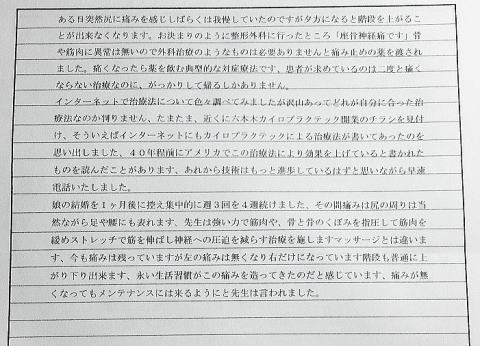 ある日突然尻に痛みを感じしばらくは我慢していたのですが夕方になると階段を上がるこ
とが出来なくなります。お決まりのように整形外科に行ったところ「座骨神経痛です」骨
や筋肉に異常は無いので外科治療のようなものは必要ありませんと痛み止めの薬を渡され
ました。痛くなったら薬を飲む典型的な対症療法です、患者が求めているのは二度と痛く
ならない治療なのに、がっかりして帰るしかありません。
インターネットで治療法について色々調べてみましたが沢山あってどれが自分に合った治
療法なのか判りません、たまたま、近くに六本木カイロプラクティック開業のチラシを見付
け、そういえばインターネットにもカイロプラクテックによる治療法が書いてあったのを
思い出しました、４０年程前にアメリカでこの治療法により効果を上げていると書かれた
ものを読んだことがあります、あれから技術はもっと進歩しているはずと思いながら早速
電話いたしました。
娘の結婚を１ヶ月後に控え集中的に週３回を４週続けました、その間痛みは尻の周りは当
然ながら足や腰にも表れます、先生は強い力で筋肉や、骨と骨のくぼみを指圧して筋肉を
緩めストレッチで筋を伸ばし神経への圧迫を減らす治療を施しますマッサージとは違いま
す、今も痛みは残っていますが左の痛みは無くなり右だけになっています階段も普通に上
がり下り出来ます、永い生活習慣がこの痛みを造ってきたのだと感じています、痛みが無
くなってもメンテナンスには来るようにと先生は言われました。